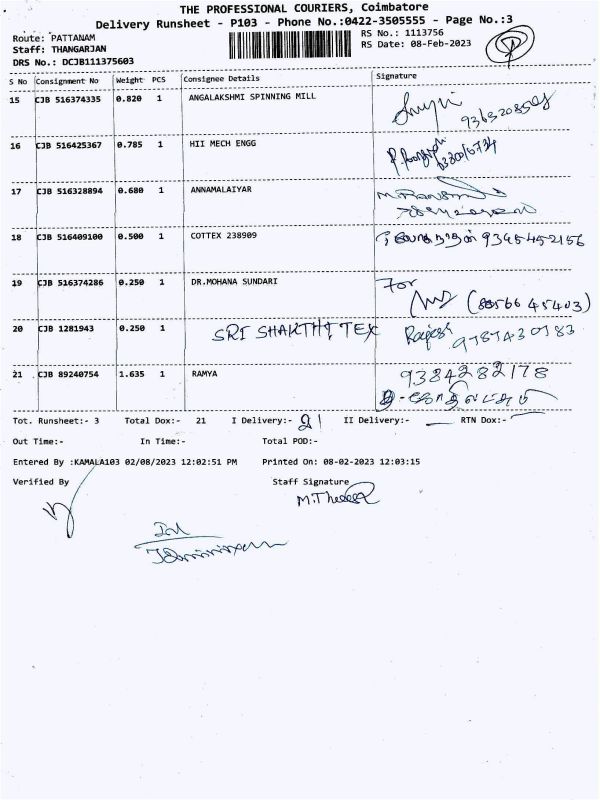 THE PROFESSIONAL COURIERS, Coimbatore
Delivery Runsheet - P103 - Phone No.:0422-3505555 - Page No.:3
Route: PATTANAM
RS No.: 1113756
Staff: THANGARJAN
RS Date: 08-Feb-2023
DRS No.: DCJB111375603
S No Consignment No Weight PCS Consignee Details Signature
15 CJB 516374335 0.820 1 ANGALAKSHMI SPINNING MILL
16 CJB 516425367 0.785 1 HII MECH ENGG
17 CJB 516328894 0.680 1 ANNAMALAIYAR
18 CJB 516409100 0.500 1 COTTEX 238909 9345452156
19 CJB 516374286 0.250 1 DR.MOHANA SUNDARI For
20 CJB 1281943 0.250 1 SRI SHAKTHI TEX Rajesh 9787430783
21 CJB 89240754 1.635 1 RAMYA 9384282178
Tot. Runsheet:- 3 Total Dox:- 21 I Delivery:- 21 II Delivery:- RTN Dox:-
Out Time:- In Time:- Total POD:-
Entered By :KAMALA103 02/08/2023 12:02:51 PM Printed On: 08-02-2023 12:03:15
Verified By Staff Signature